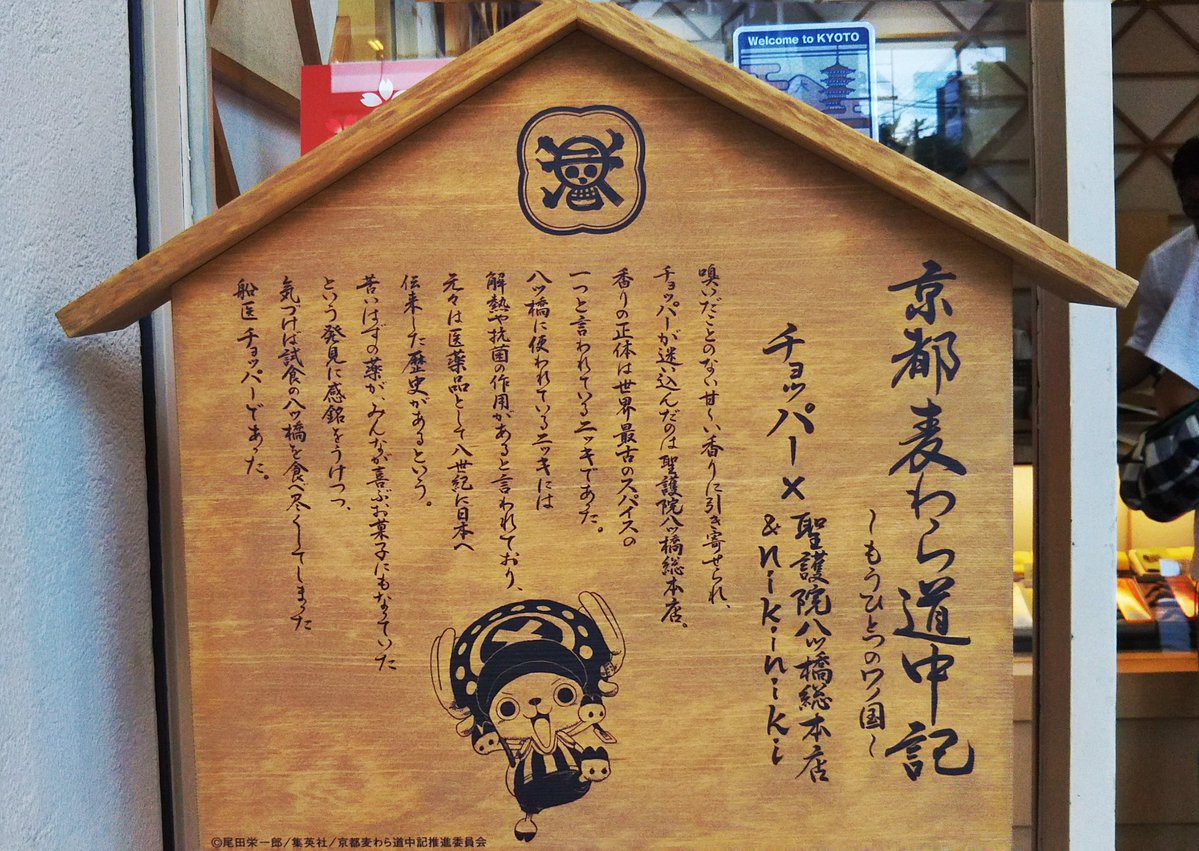 Welcome to KYOTO
京都麦わら道中記
~もうひとつのワノ国~
チョッパー×聖護院八ッ橋総本店
&nikiniki
嗅いだことのない甘~い香りに引き寄せられ、
チョッパーが迷い込んだのは聖護院八ッ橋総本店。
香りの正体は世界最古のスパイスの
一つと言われているニッキであった。
八ッ橋に使われているニッキには
解熱や抗菌の作用があると言われており、
元々は医薬品として八世紀に日本へ
伝来した歴史があるという。
苦いはずの薬が、みんなが喜ぶお菓子にもなっていた
という発見に感銘をうけつつ、
気づけば試食の八ッ橋を食べ尽くしてしまった
船医チョッパーであった。
©尾田栄一郎/集英社/京都麦わら道中記推進委員会